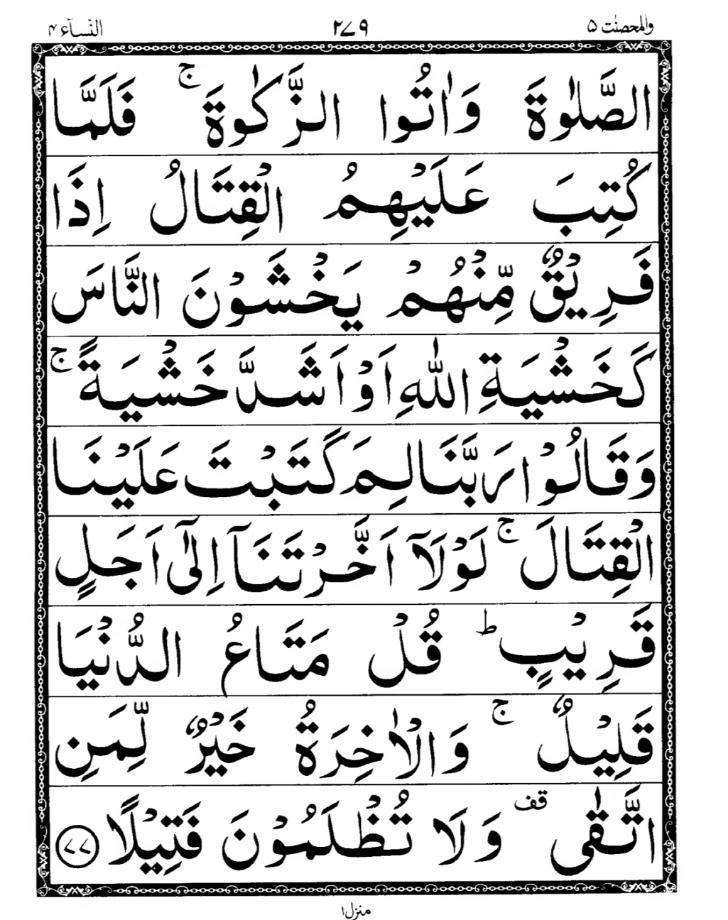 والمحصنت ۵ ۲۷۹ النسآء ۴
الصَّلٰوةَ وَاٰتُوا الزَّكٰوةَ ۚ فَلَمَّا
كُتِبَ عَلَيْهِمُ الْقِتَالُ اِذَا
فَرِيْقٌ مِّنْهُمْ يَخْشَوْنَ النَّاسَ
كَخَشْيَةِ اللّٰهِ اَوْ اَشَدَّ خَشْيَةً ۚ
وَقَالُوْا رَبَّنَا لِمَ كَتَبْتَ عَلَيْنَا
الْقِتَالَ ۚ لَوْلَاۤ اَخَّرْتَنَاۤ اِلٰۤى اَجَلٍ
قَرِيْبٍ ؕ قُلْ مَتَاعُ الدُّنْيَا
قَلِيْلٌ ۚ وَالْاٰخِرَةُ خَيْرٌ لِّمَنِ
اتَّقٰى قف وَلَا تُظْلَمُوْنَ فَتِيْلًا ﴿۷۷﴾
منزل ۱